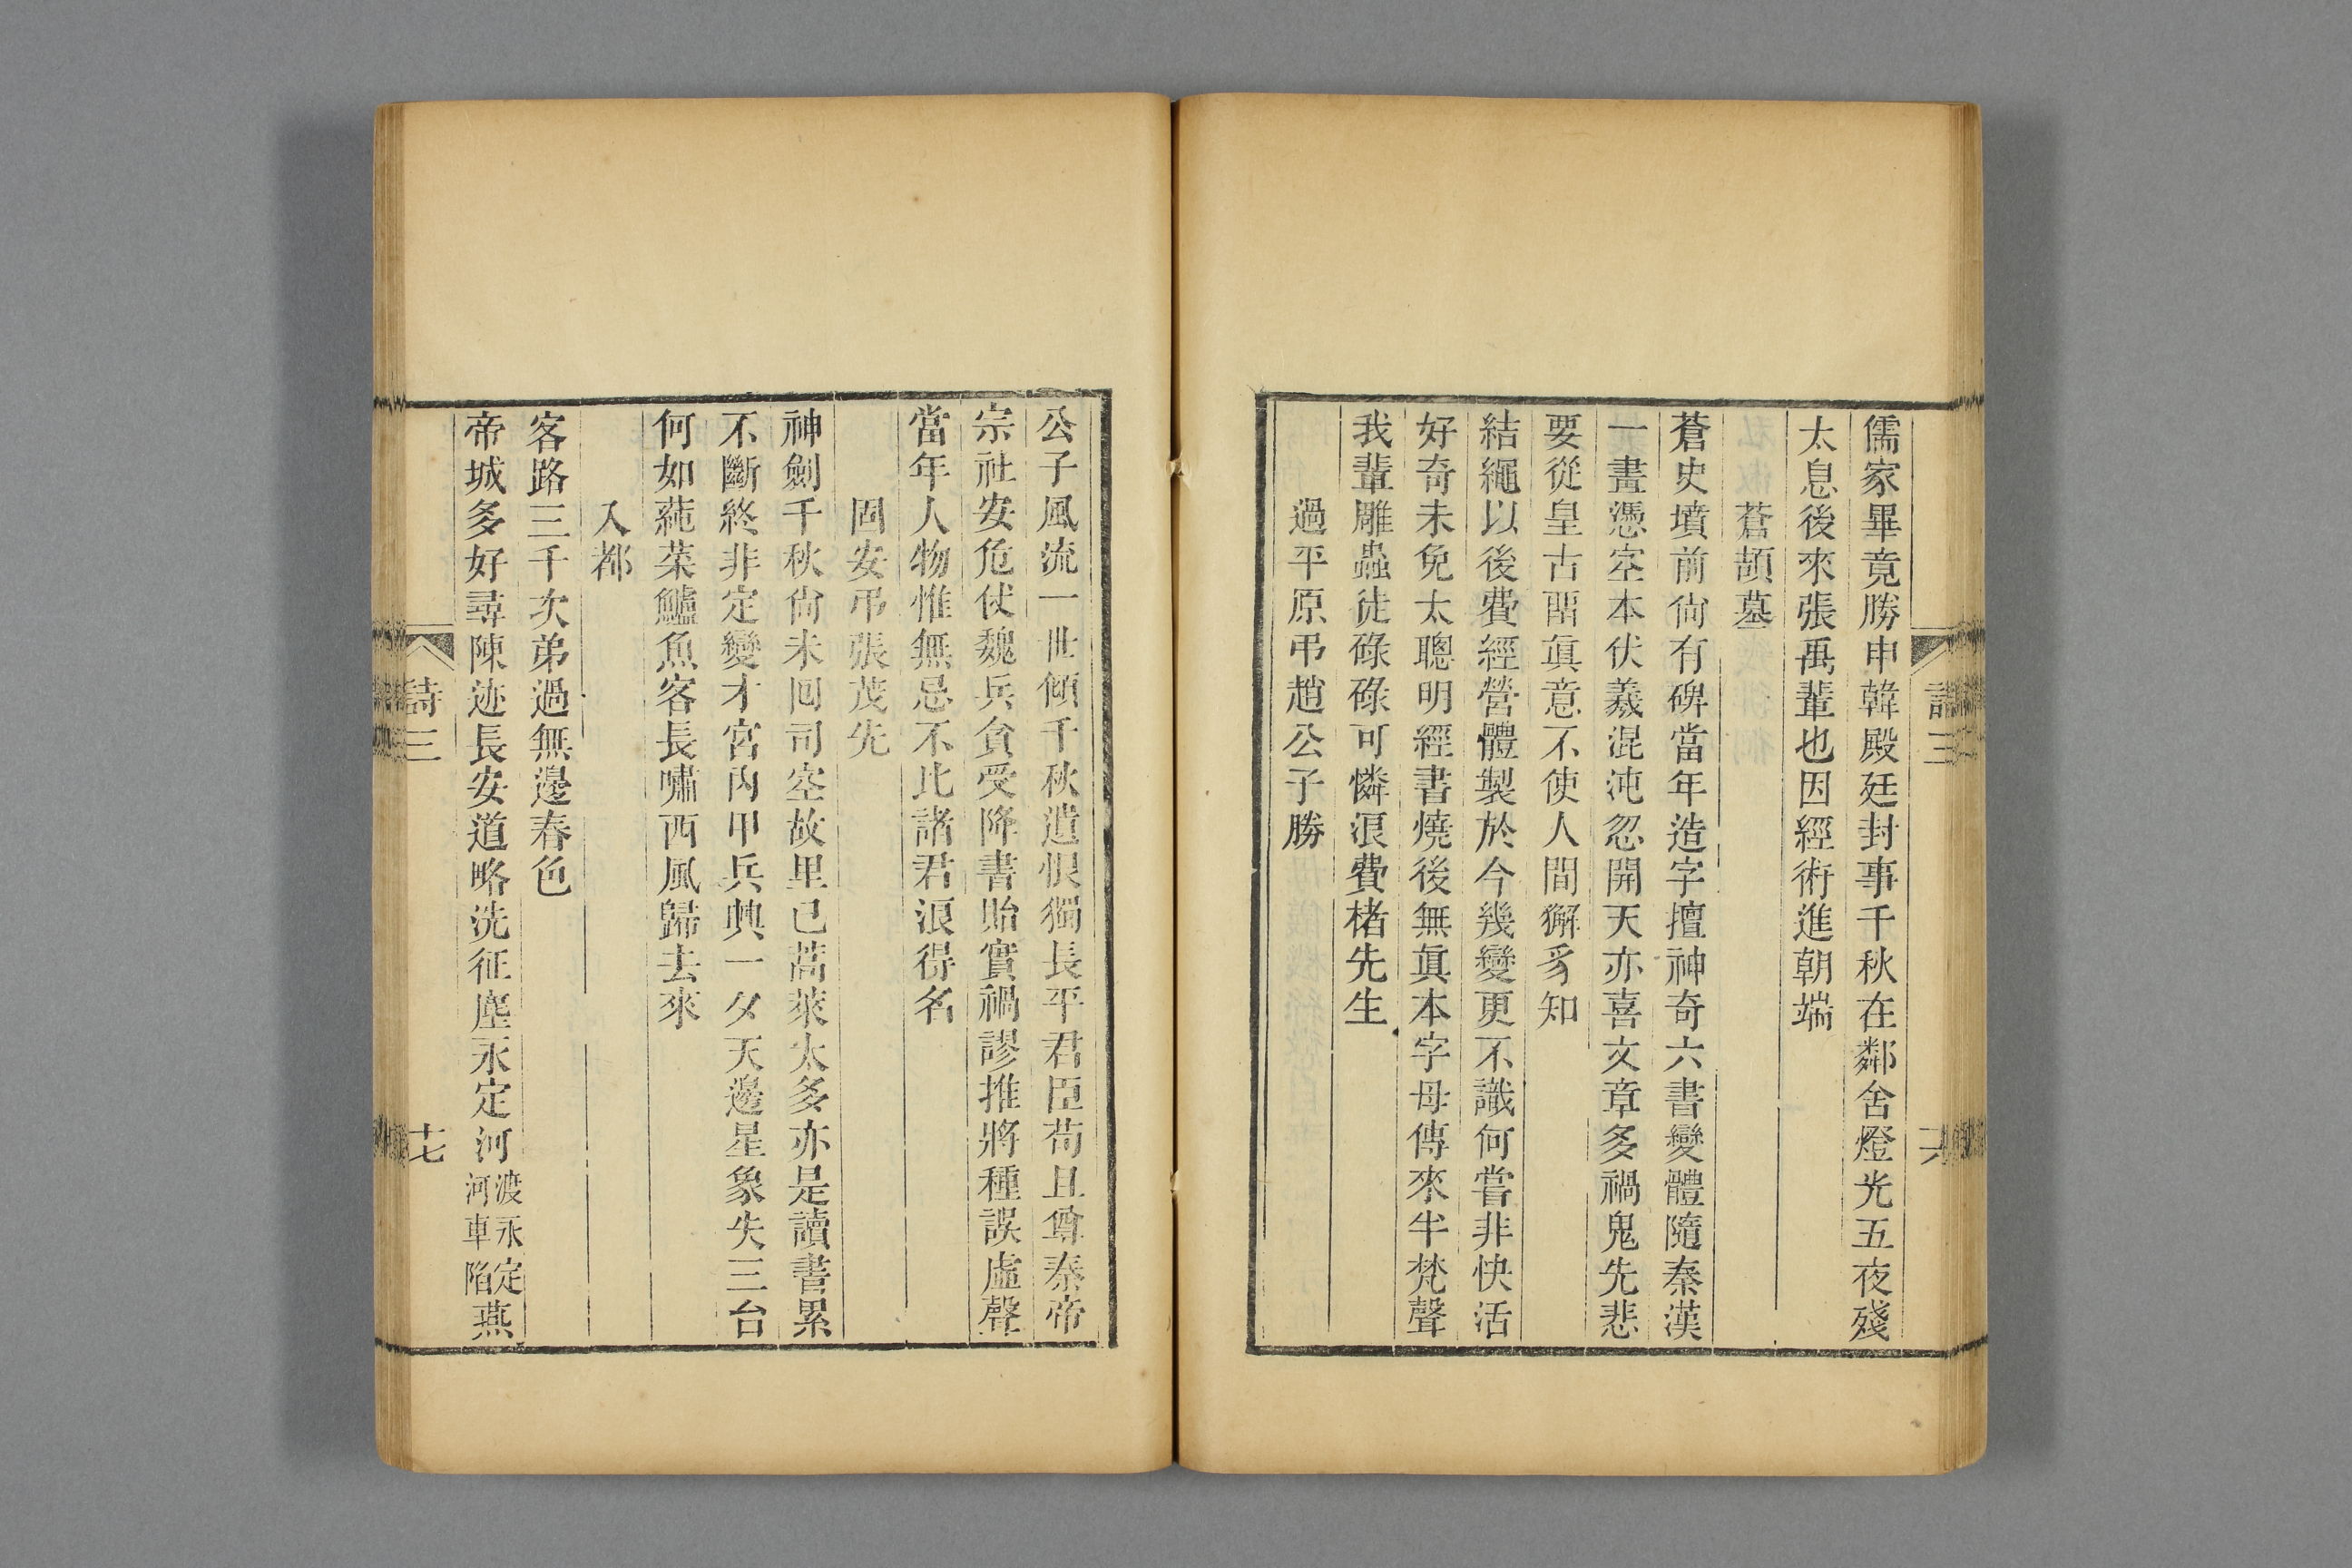 儒家畢竟勝申韓殿廷封事千秋在鄰舍燈光五夜殘
太息後來張禹輩也因經術進朝端
蒼頡墓
蒼史墳前尙有碑當年造字擅神奇六書變體隨秦漢
一畫憑空本伏羲混沌忽開天亦喜文章多禍鬼先悲
要從皇古畱眞意不使人間獬豸知
結繩以後費經營體製於今幾變更不識何嘗非快活
好奇未免太聰明經書燒後無眞本字母傳來半梵聲
我輩雕蟲徒碌碌可憐浪費楮先生
過平原弔趙公子勝
詩三
公子風流一世傾千秋遺恨獨長平君臣苟且尊秦帝
宗社安危仗魏兵貪受降書貽實禍謬推將種誤虛聲
當年人物惟無忌不比諸君浪得名
固安弔張茂先
神劍千秋尙未回司空故里已蒿萊太多亦是讀書累
不斷終非定變才宮內甲兵興一夕天邊星象失三台
何如蓴菜鱸魚客長嘯西風歸去來
入都
客路三千次弟過無邊春色
帝城多好尋陳迹長安道略洗征塵永定河渡永定河車陷燕
詩三
十七